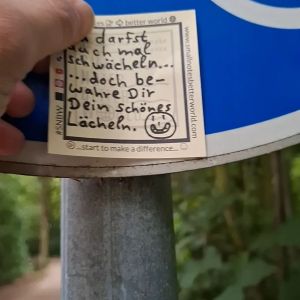 better world
darfst
auch mal
schwächeln...
...doch be-
wahre Dir
Dein schönes
Lächeln.
www.smallnotesbetterworld.com
#SNBW
...start to make a difference...